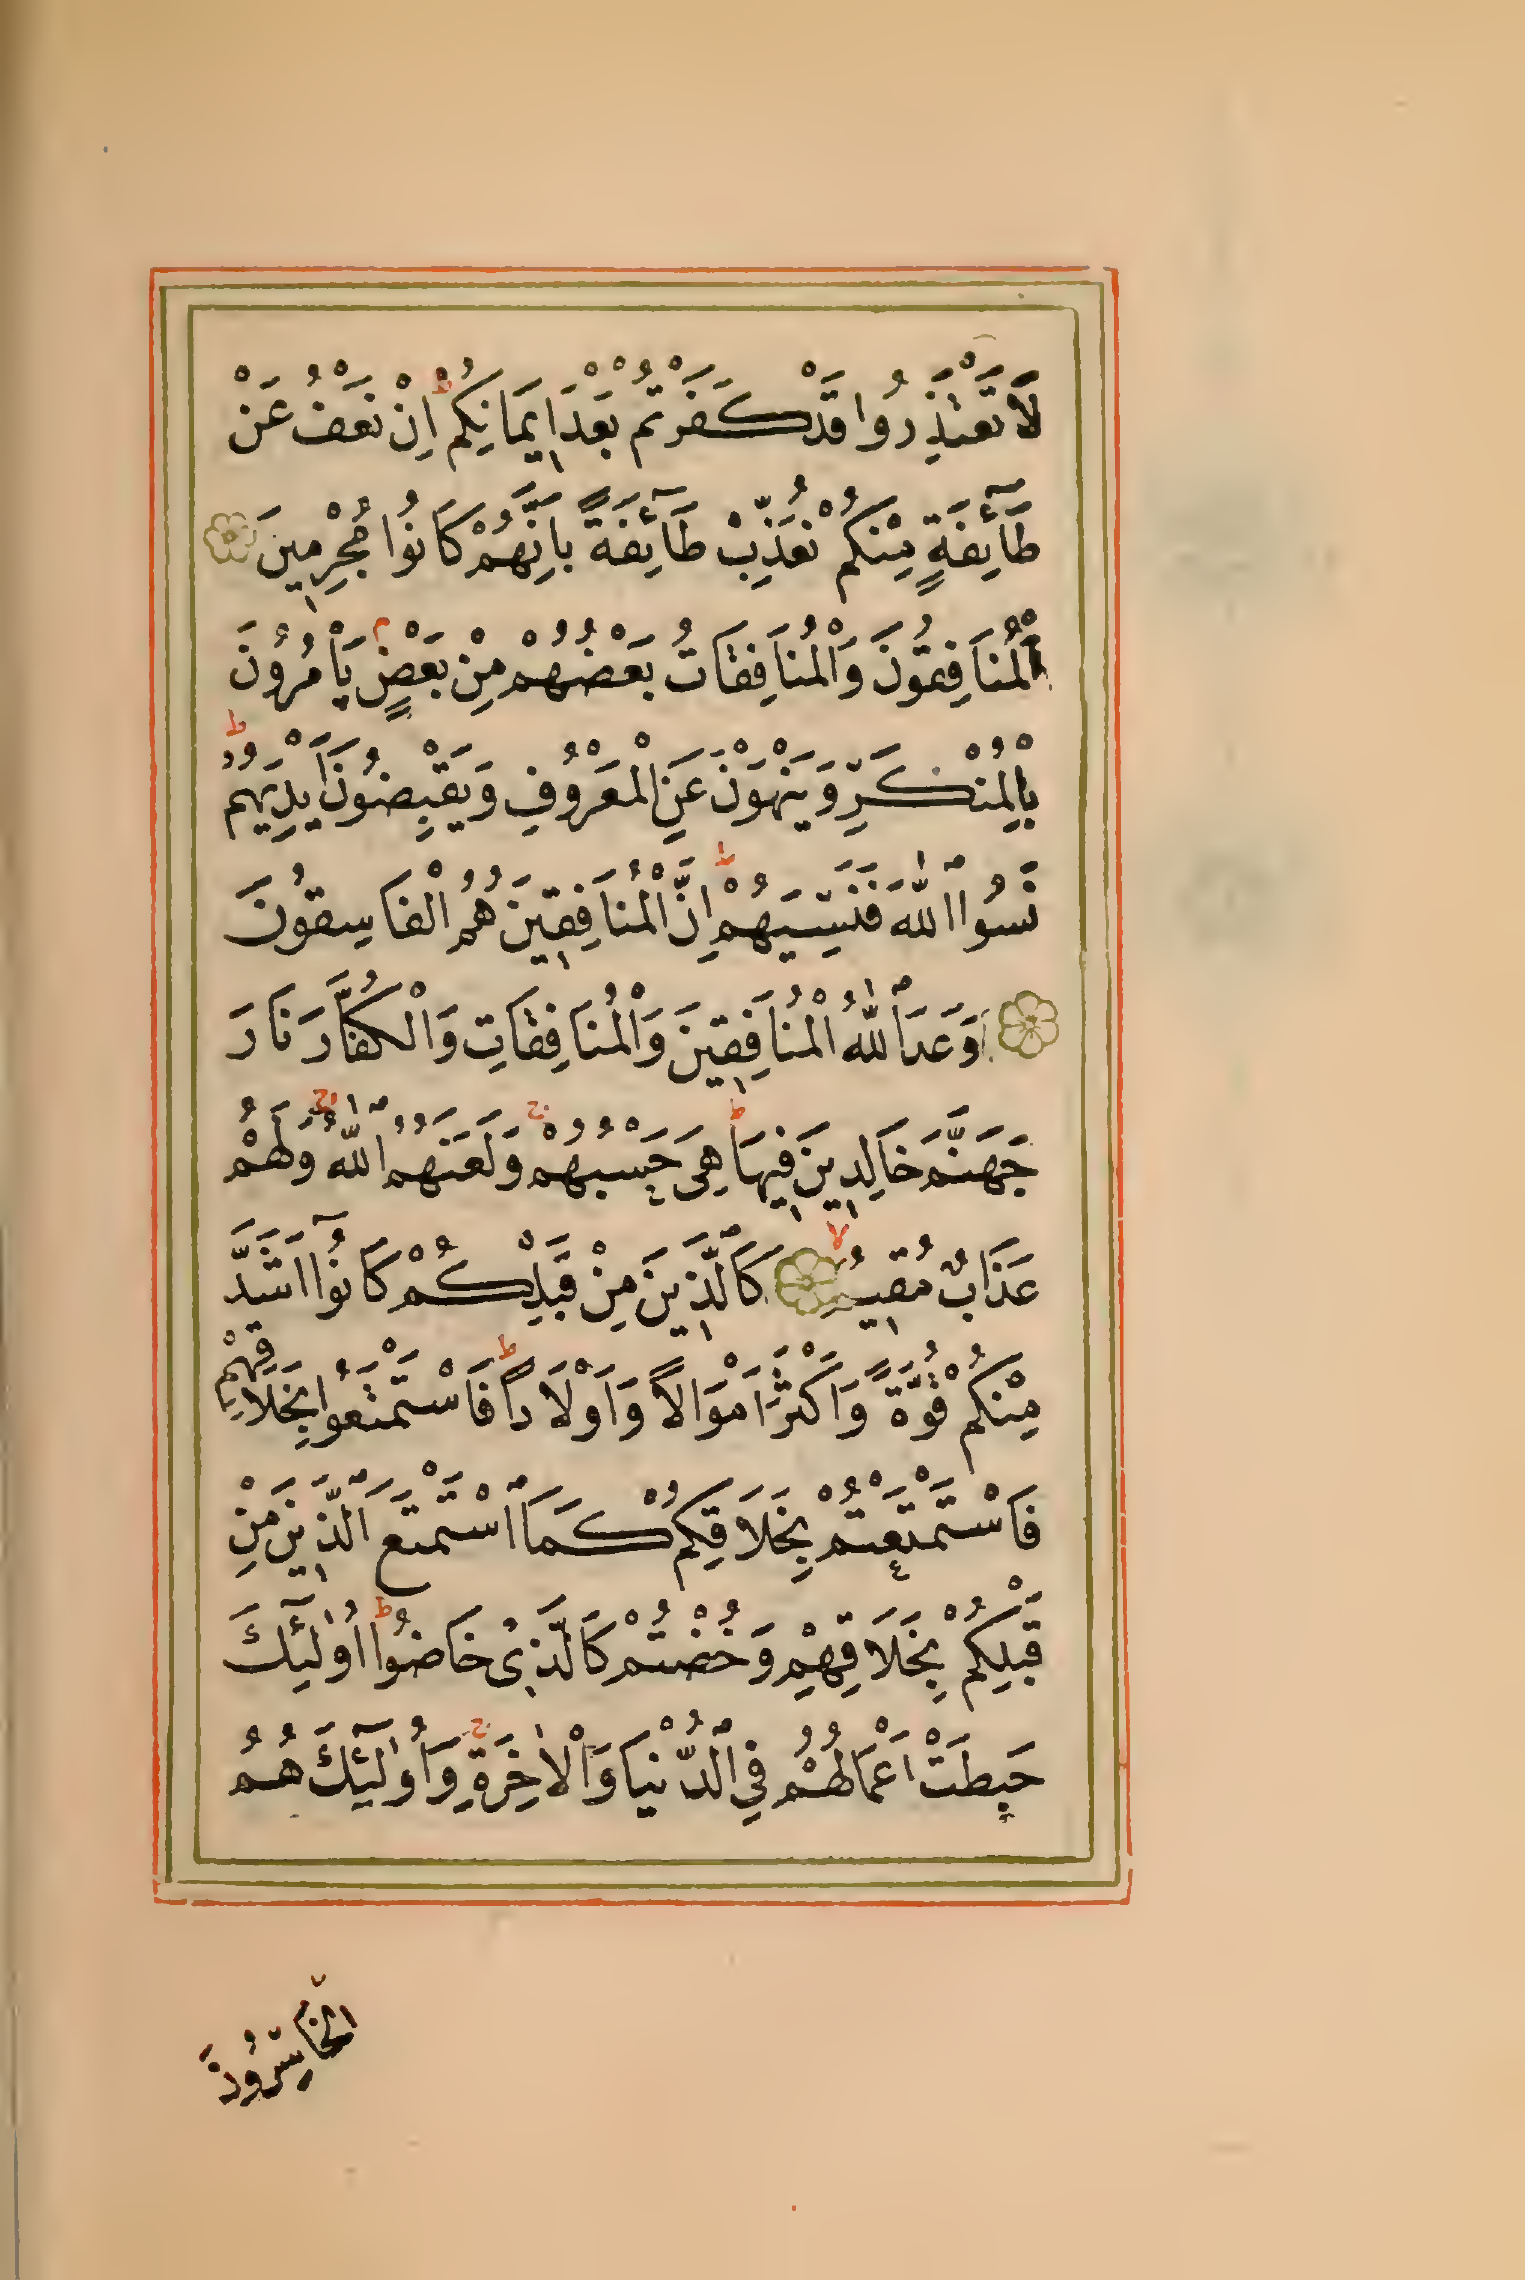 لَا تَعْتَذِرُوا قَدْ كَفَرْتُمْ بَعْدَ اِيمَانِكُمْ ط اِنْ نَعْفُ عَنْ
طَآئِفَةٍ مِنْكُمْ نُعَذِّبْ طَآئِفَةً بِاَنَّهُمْ كَانُوا مُجْرِمِينَ
اَلْمُنَافِقُونَ وَالْمُنَافِقَاتُ بَعْضُهُمْ مِنْ بَعْضٍ م يَأْمُرُونَ
بِالْمُنْكَرِ وَيَنْهَوْنَ عَنِ الْمَعْرُوفِ وَيَقْبِضُونَ اَيْدِيَهُمْ ط
نَسُوا اللّٰهَ فَنَسِيَهُمْ ط اِنَّ الْمُنَافِقِينَ هُمُ الْفَاسِقُونَ
وَعَدَ اللّٰهُ الْمُنَافِقِينَ وَالْمُنَافِقَاتِ وَالْكُفَّارَ نَارَ
جَهَنَّمَ خَالِدِينَ فِيهَا ط هِيَ حَسْبُهُمْ ج وَلَعَنَهُمُ اللّٰهُ ج وَلَهُمْ
عَذَابٌ مُقِيمٌ لا كَالَّذِينَ مِنْ قَبْلِكُمْ كَانُوآ اَشَدَّ
مِنْكُمْ قُوَّةً وَاَكْثَرَ اَمْوَالًا وَاَوْلَادًا ط فَاسْتَمْتَعُوا بِخَلَاقِهِمْ
فَاسْتَمْتَعْتُمْ بِخَلَاقِكُمْ كَمَا اسْتَمْتَعَ الَّذِينَ مِنْ
قَبْلِكُمْ بِخَلَاقِهِمْ وَخُضْتُمْ كَالَّذِي خَاضُوا ط اُولٰٓئِكَ
حَبِطَتْ اَعْمَالُهُمْ فِي الدُّنْيَا وَالْاٰخِرَةِ ج وَاُولٰٓئِكَ هُمُ
الْخَاسِرُونَ